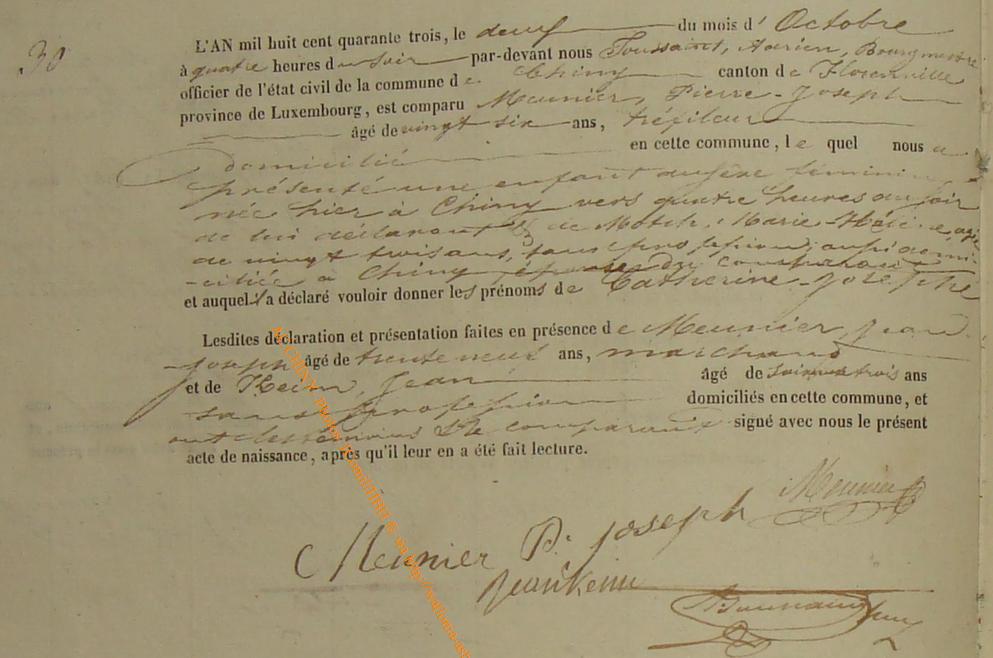 30
L'AN mil huit cent quarante trois, le deux du mois d' Octobre
à quatre heures du soir par-devant nous Toussaint, Adrien, Bourgmestre
officier de l'état civil de la commune de Chiny canton de Florenville
province de Luxembourg, est comparu Meunier, Pierre-Joseph
âgé de vingt six ans, trefileur
domicilié en cette commune, le quel nous a
présenté une enfant du sexe féminin
née hier à Chiny vers quatre heures du soir
de lui déclarant & de Marie agée
de vingt trois ans, sans profession, aussi domi-
-ciliée à Chiny, épouse du comparant
et auquel il a déclaré vouloir donner les prénoms de Catherine-Josèphe
Lesdites déclaration et présentation faites en présence de Meunier, Jean
Joseph âgé de trente neuf ans, marchand
et de Keim, Jean âgé de soixante trois ans
sans profession domiciliés en cette commune, et
ont les témoins & le comparant signé avec nous le présent
acte de naissance, après qu'il leur en a été fait lecture.
Meunier
Meunier P. Joseph
Jean Keim
Toussaint